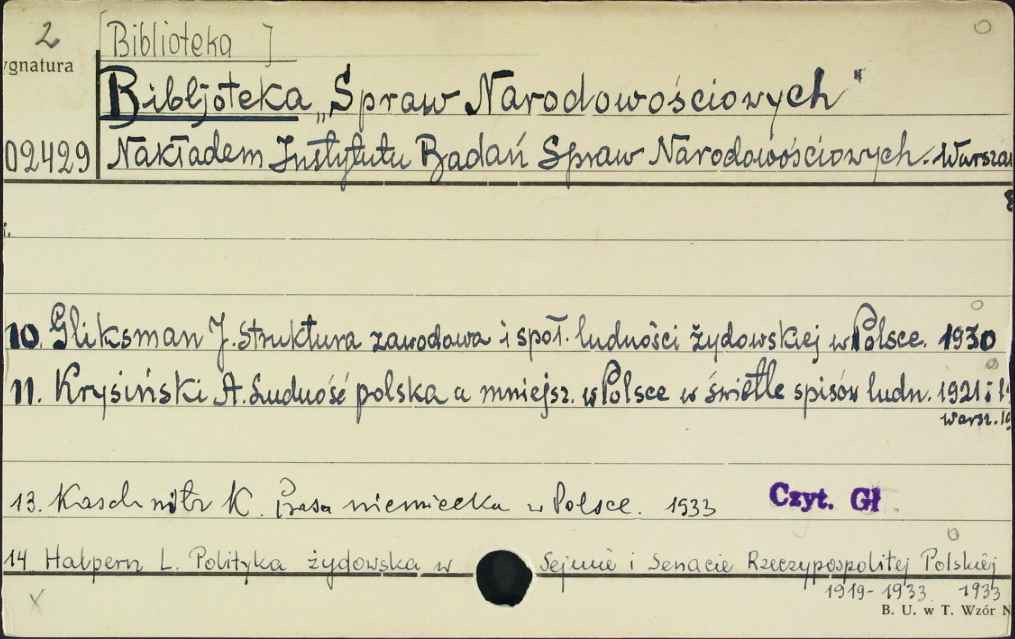 2 [Biblioteka]
ygnatura
Bibljoteka „Spraw Narodowościowych"
02429 Nakładem Instytutu Badań Spraw Narodowościowych. Warszaw
8
10. Gliksman J. Struktura zawodowa i społ. ludności żydowskiej w Polsce. 1930
11. Krysiński A. Ludność polska a mniejsz. w Polsce w świetle spisów ludn. 1921 i 19
Warsz. 19
13. Kaschnitz K. Prasa niemiecka w Polsce. 1933 Czyt. Gł.
14 Halpern L. Polityka żydowska w Sejmie i Senacie Rzeczypospolitej Polskiej
1919-1933 1933
X
B. U. w T. Wzór N